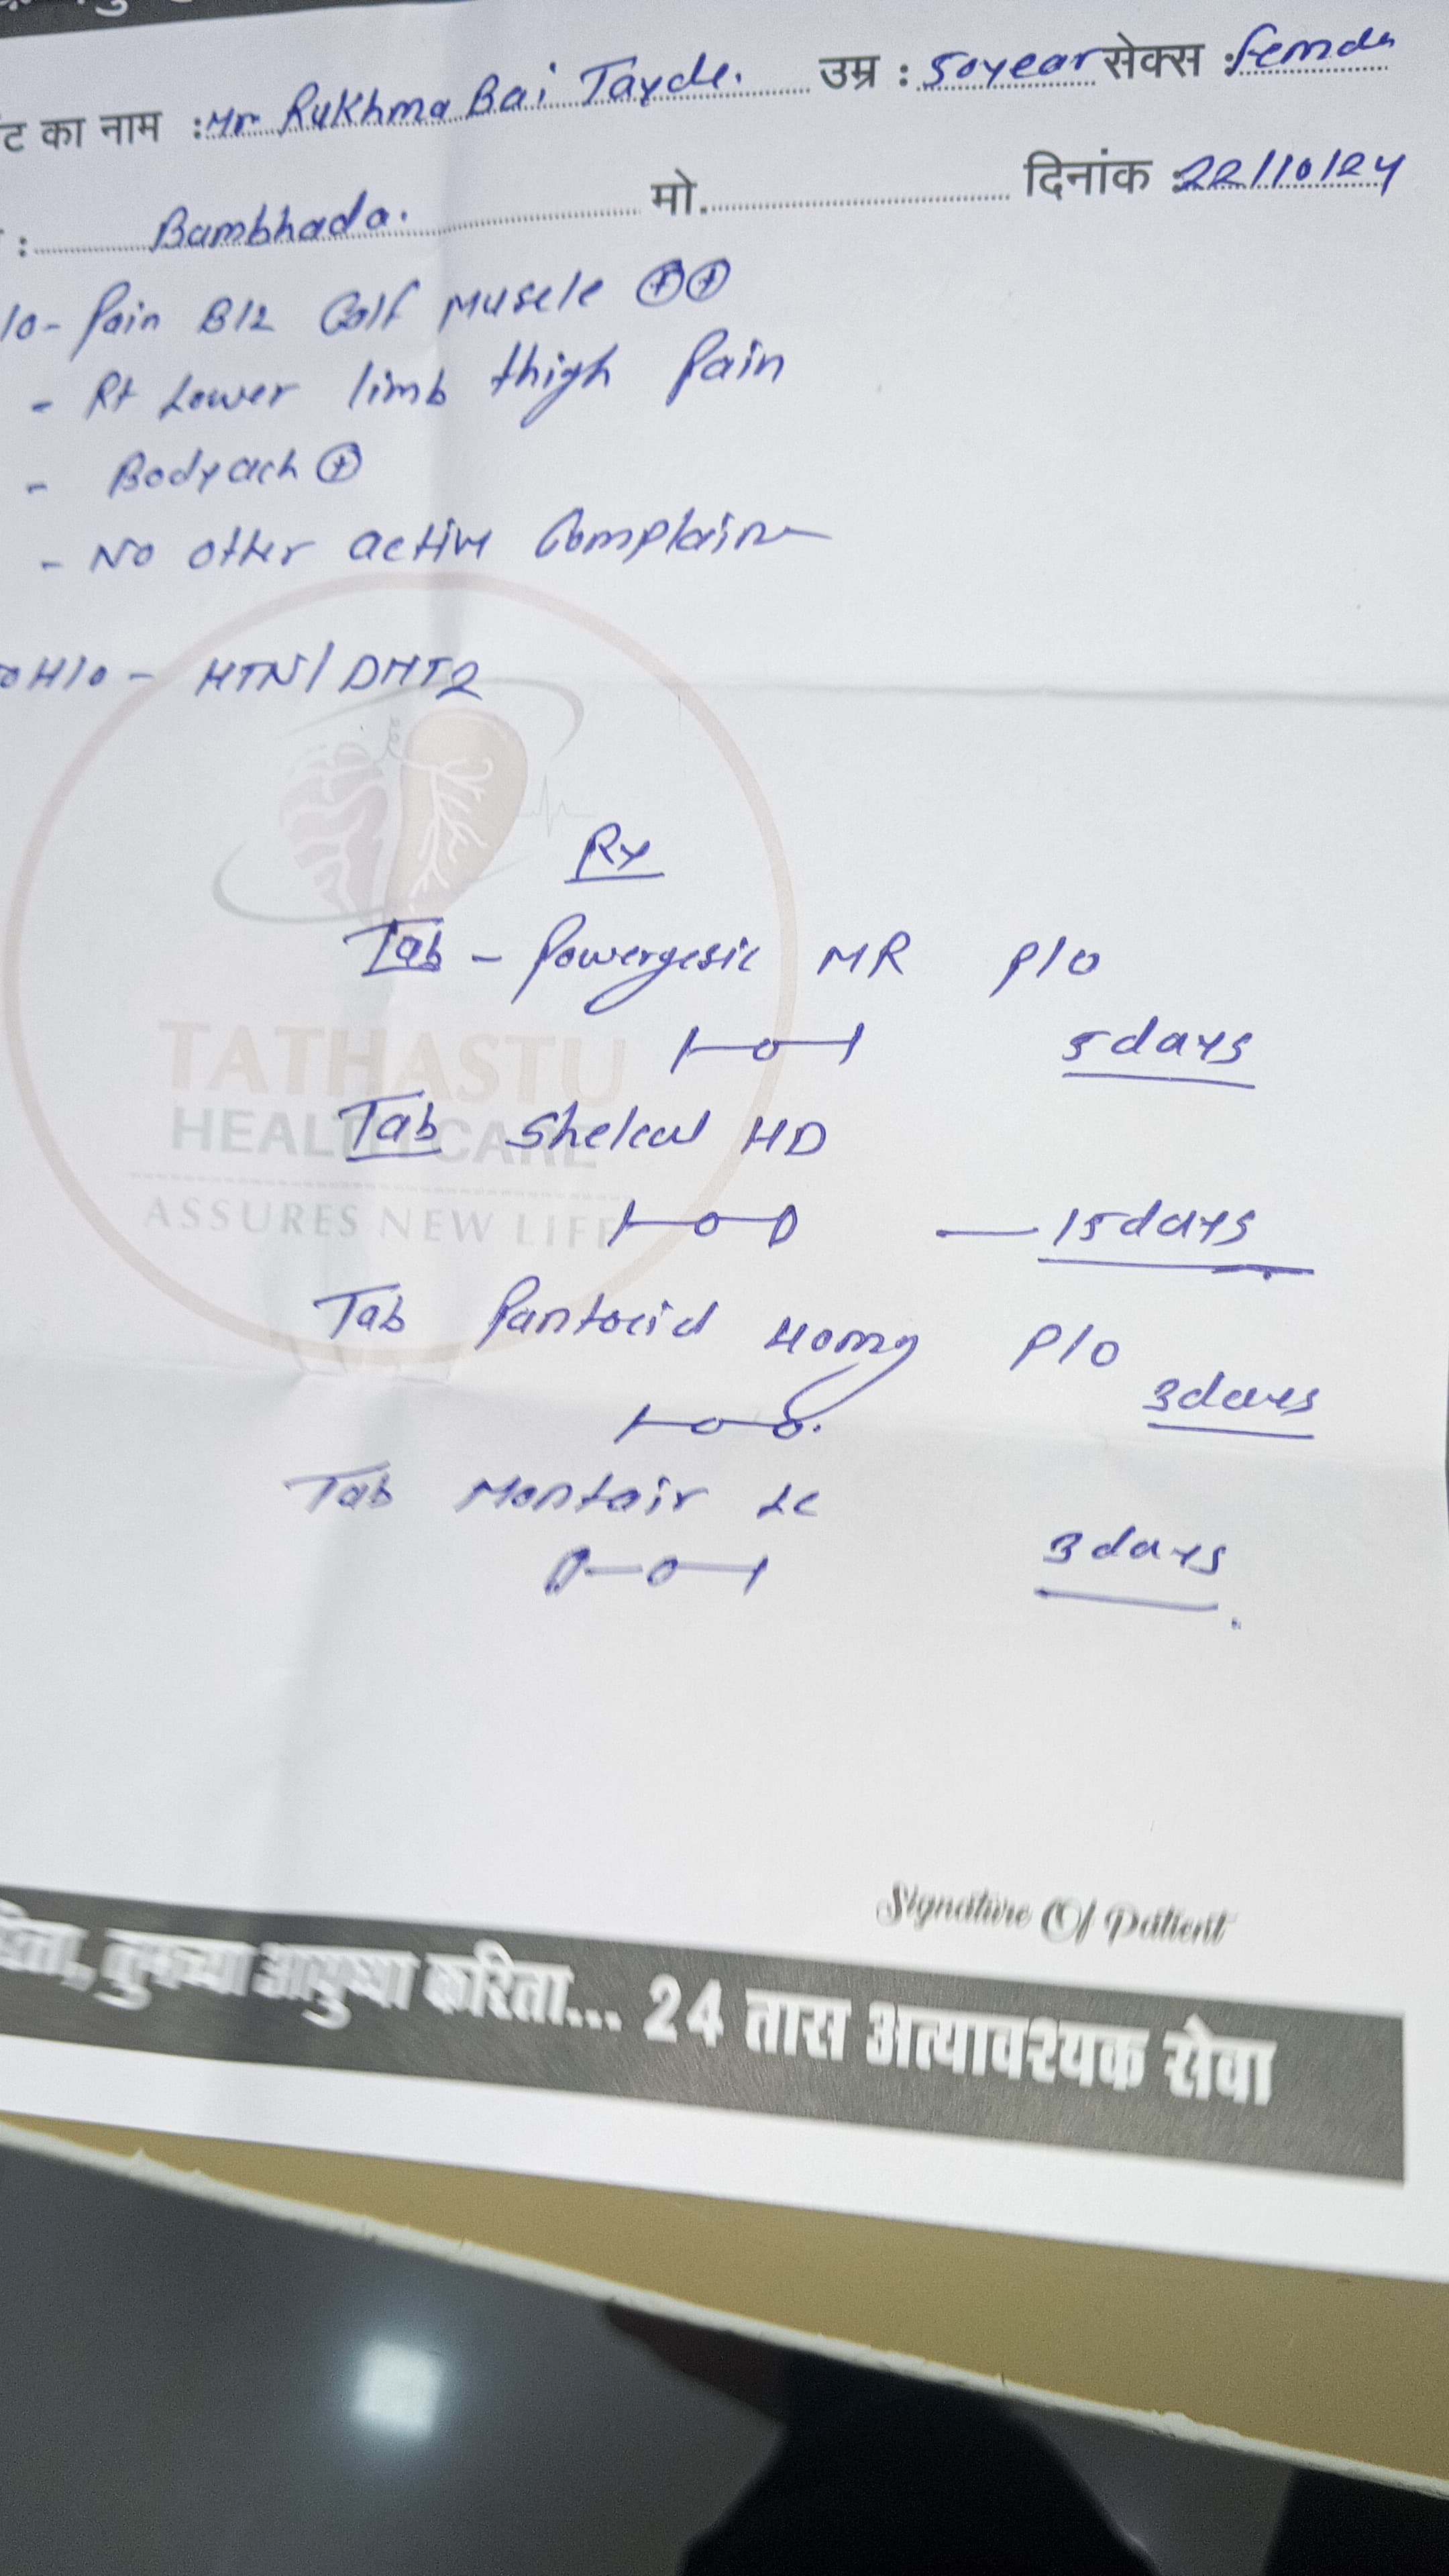 ट का नाम :Mr Rukhma Bai Tayde. उम्र : 50year सेक्स : female
: Bambhada. मो. दिनांक : 22/10/24
/o- Pain B/L Calf Muscle ⊕⊕
- Rt Lower limb thigh Pain
- Bodyach ⊕
- No other active Complain
H/o - HTN/DMT2
Rx
Tab - Powergesic MR P/O
1-0-1 5days
Tab Shelcal HD
1-0-0 — 15days
Tab Pantocid 40mg P/O
1-0-0. 3days
Tab Montair LC
0-0-1 3days.
TATHASTU
HEALTHCARE
ASSURES NEW LIFE
Signature Of Patient
करिता... 24 तास अत्यावश्यक सेवा